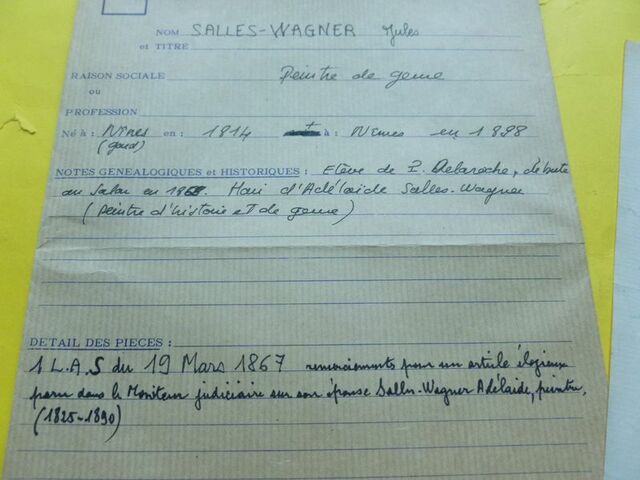 NOM SALLES-WAGNER Jules
et TITRE
RAISON SOCIALE Peintre de genre
ou
PROFESSION
Né à : Nîmes en : 1814 + à : Nîmes en 1898
(gard)
NOTES GENEALOGIQUES et HISTORIQUES : Elève de P. Delaroche, débute
au Salon en Mari d'Adélaïde Salles-Wagner
(Peintre d'histoire et de genre)
DETAIL DES PIECES :
1 L.A.S du 19 Mars 1867 remerciements pour un article élogieux
paru dans le Moniteur judiciaire sur son épouse Salles-Wagner Adélaïde, peintre,
(1825-1890)